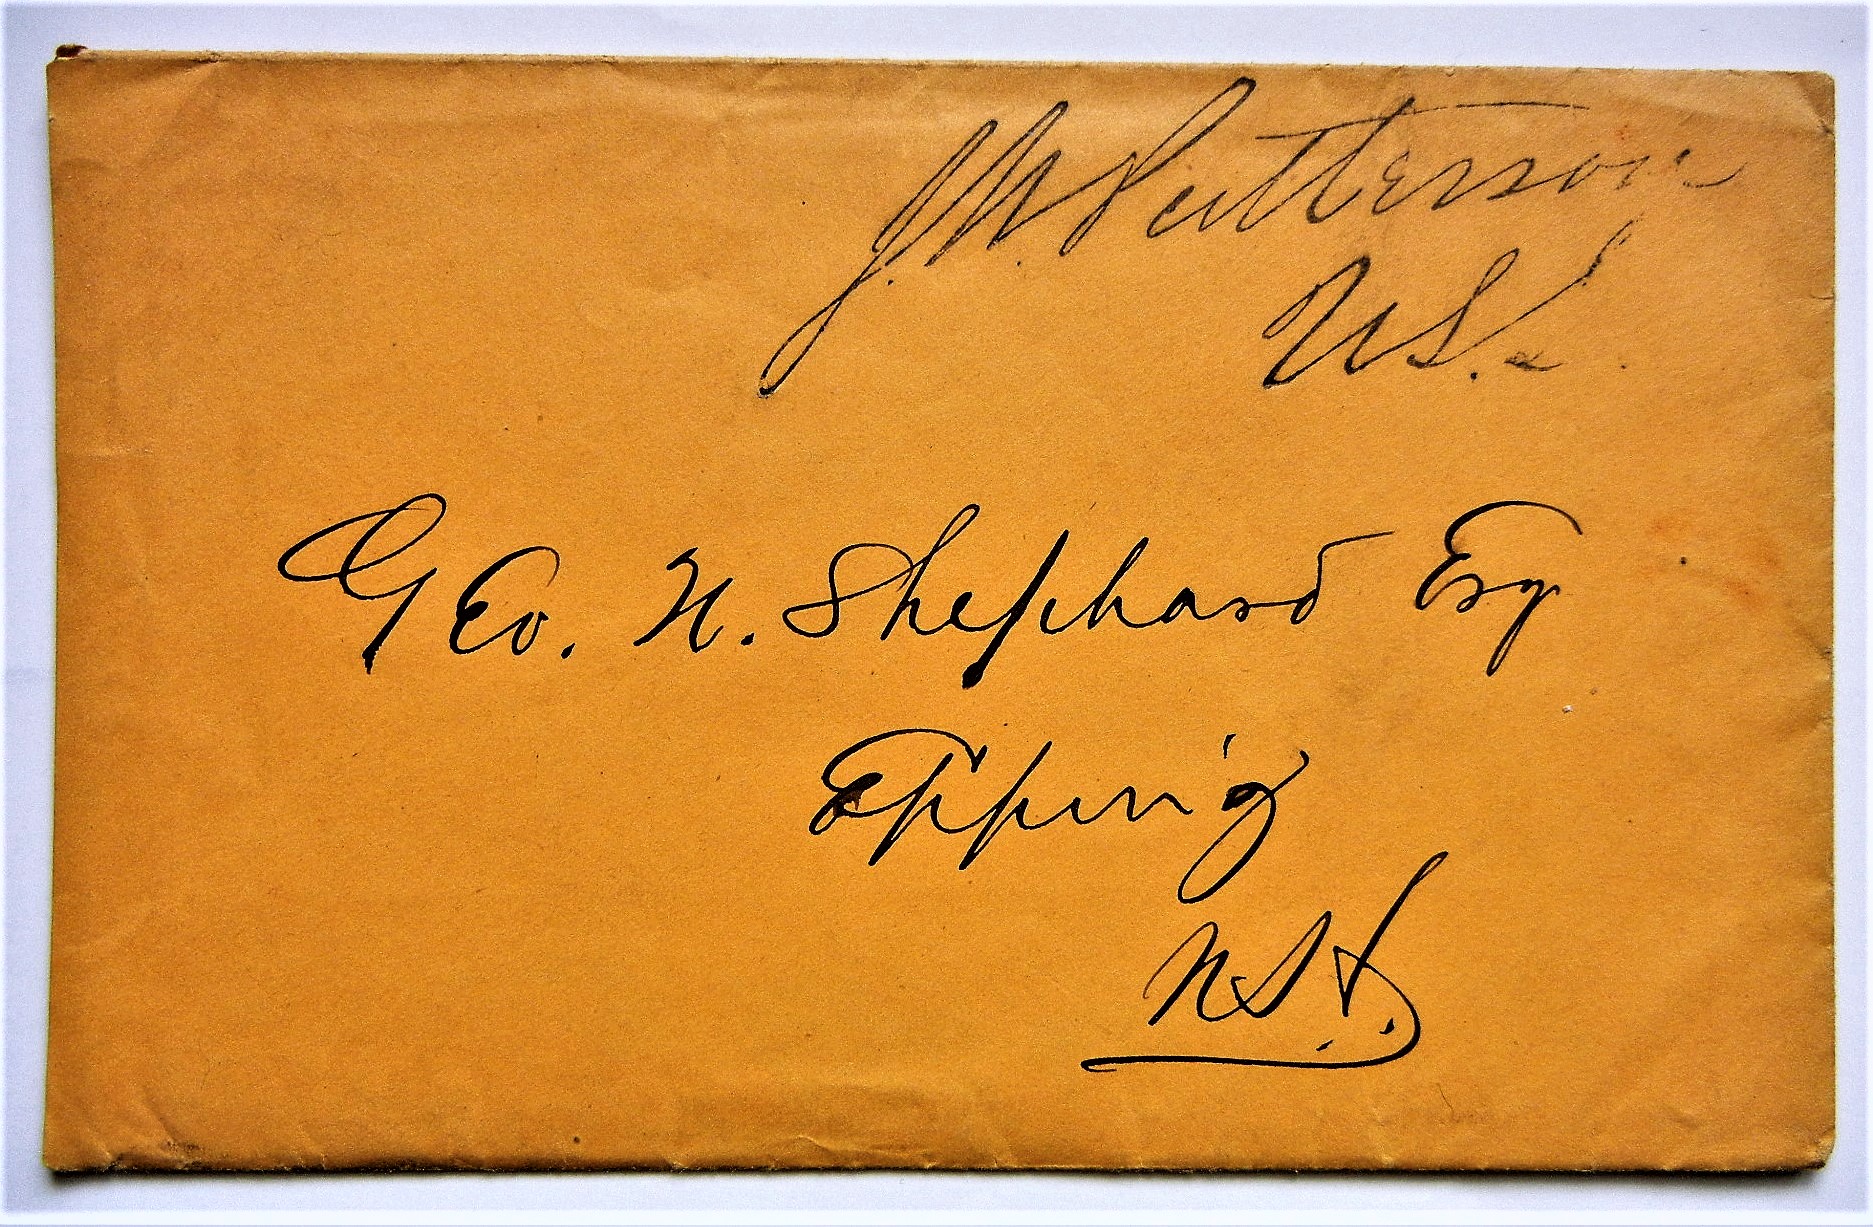 J.W. Patterson
U.S.S.
Geo. N. Shephard Esq
Epping
N.H.